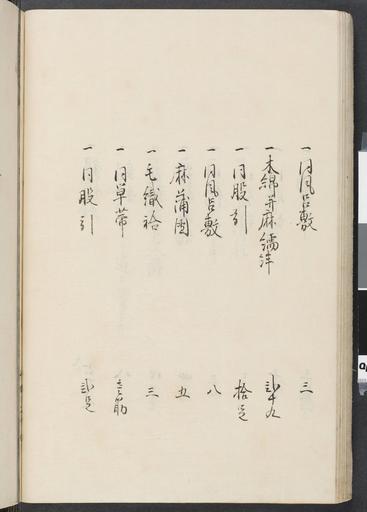 一同風呂敷 三
一木綿并麻襦袢 弐十九
一同股引 拾足
一同風呂敷 八
一麻蒲団 五
一毛織袷 三
一同草帯 壱筋
一同股引 弐足